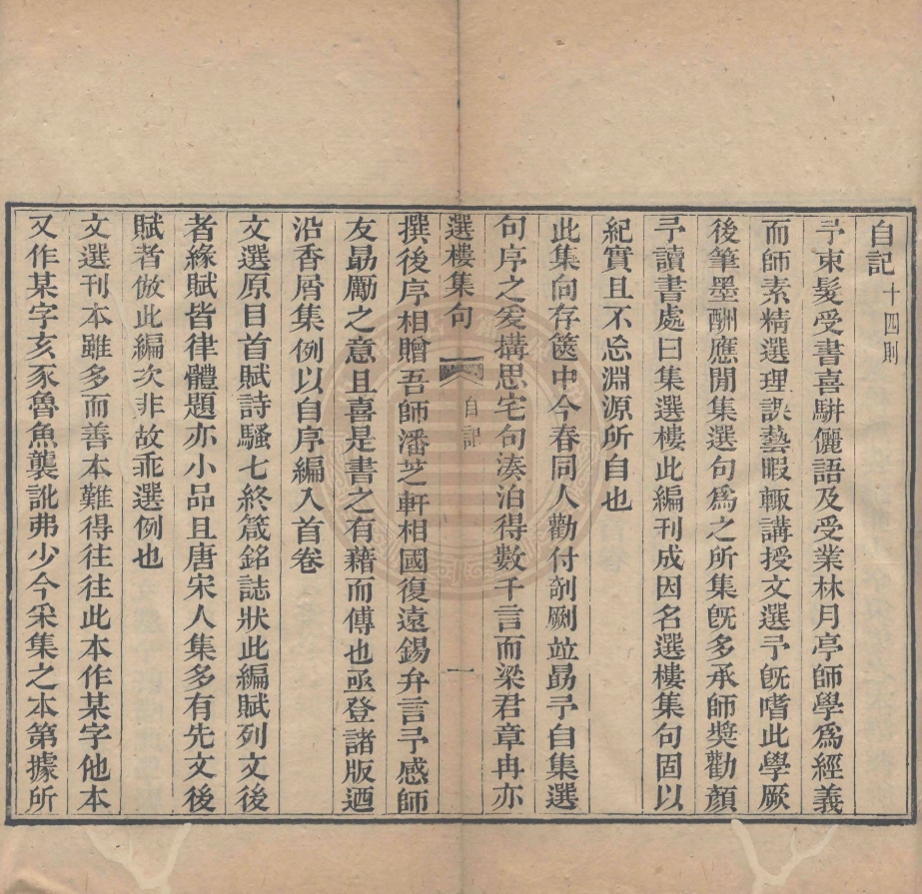 自記十四則
予束髮受書喜駢儷語及受業林月亭師學爲經義
而師素精選理課藝暇輙講授文選予旣嗜此學厥
後筆墨酬應閒集選句爲之所集旣多承師奬勸顏
予讀書處曰集選樓此編刊成因名選樓集句固以
紀實且不忘淵源所自也
此集向存篋中今春同人勸付剞劂竝勗予自集選
句序之爰搆思宅句湊泊得數千言而梁君章冉亦
選樓集句 自記 一
撰後序相贈吾師潘芝軒相國復遠錫弁言予感師
友勗勵之意且喜是書之有藉而傳也亟登諸版迺
沿香屑集例以自序編入首卷
文選原目首賦詩騷七終箴銘誌狀此編賦列文後
者緣賦皆律體題亦小品且唐宋人集多有先文後
賦者倣此編次非故乖選例也
文選刊本雖多而善本難得往往此本作某字他本
又作某字亥豕魯魚襲訛弗少今采集之本第據所